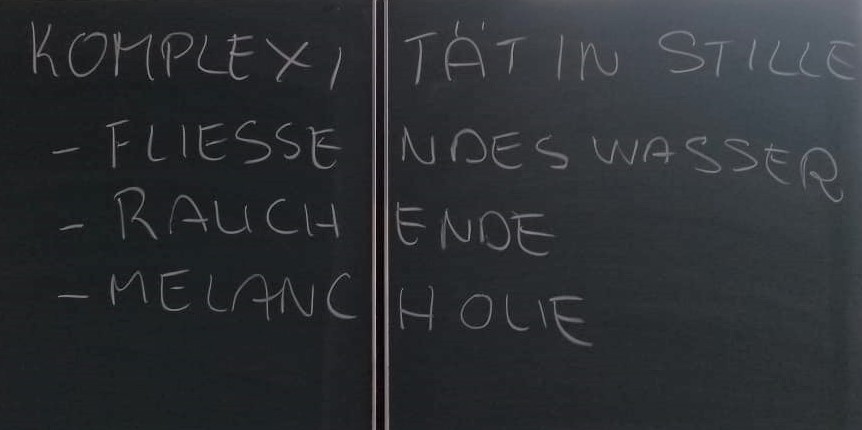 KOMPLEXITÄT IN STILLE
- FLIESSENDES WASSER
- RAUCHENDE
- MELANCHOLIE